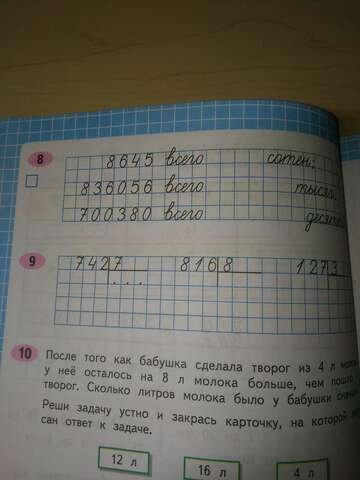 8
8645 всего сотен;
836056 всего тысяч
700380 всего
9
742 7 816 8 127 3
. . .
10
После того как бабушка сделала творог из 4 л
у неё осталось на 8 л молока больше, чем пошло
творог. Сколько литров молока было у бабушки
Реши задачу устно и закрась карточку, на которой
сан ответ к задаче.
12 л 16 л 4 л